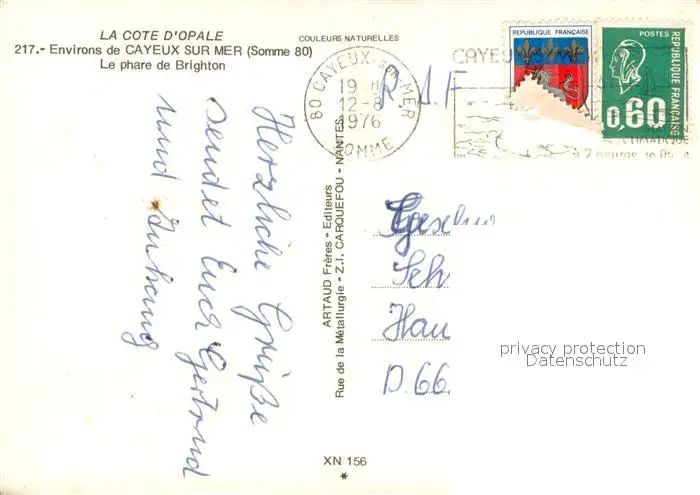 LA COTE D'OPALE
217.- Environs de CAYEUX SUR MER (Somme 80)
Le phare de Brighton
COULEURS NATURELLES
80 CAYEUX-SUR-MER
19 H
12-8
1976
SOMME
REPUBLIQUE FRANÇAISE
POSTES
REPUBLIQUE FRANÇAISE
0,60
CAYEUX
CLIMATIQUE
à 2 heures de Paris
R.A.F
Herzliche Grüße
sendet Euch Gertrud
und
ARTAUD Frères - Editeurs
Rue de la Métallurgie - Z.I. CARQUEFOU - NANTES
Sch
Hau
D 66
privacy protection
Datenschutz
XN 156
*